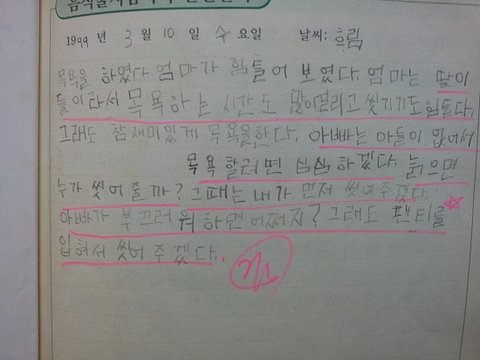 1999 년 3 월 10 일 수 요일 날씨: 흐림
목욕을 하였다. 엄마가 힘들어 보였다. 엄마는 딸이
둘이라서 목욕하는 시간도 많이걸리고 씻기기도 힘들다.
그래도 참 재미있게 목욕을한다. 아빠는 아들이 없어서
목욕할려면 심심하겠다. 늙으면
누가 씻어줄까? 그때는 내가 먼저 씻어주겠다.
아빠가 부끄러워하면 어쩌지? 그래도 팬티를
입혀서 씻어 주겠다.